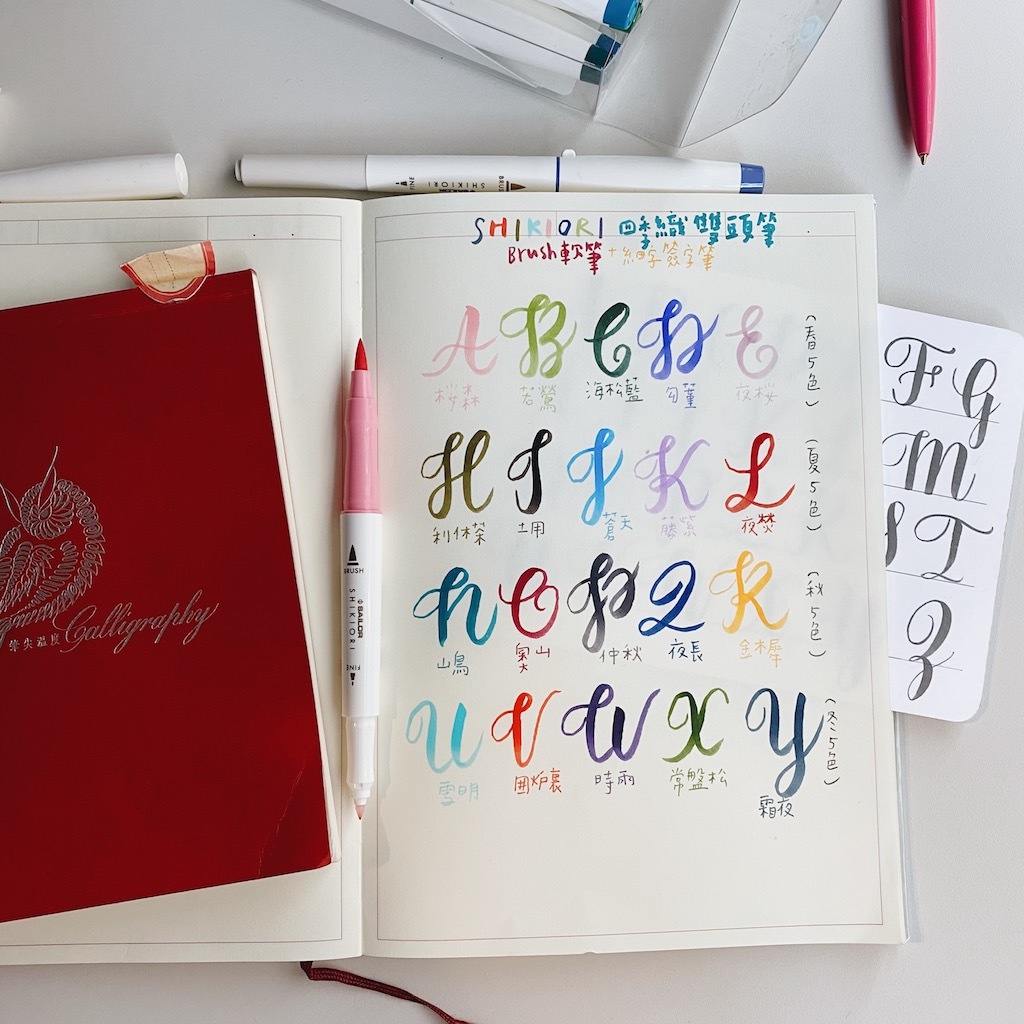 SHIKIORI 四季織雙頭筆
Brush軟筆+細字簽字筆
A B C D E
桜森 若鶯 海松藍 匂菫 夜桜
(春5色)
H I J K L
利休茶 土用 蒼天 藤紫 夜焚
(夏5色)
N O P Q R
山鳥 奥山 仲秋 夜長 金木犀
(秋5色)
U V W X Y
雪明 囲炉裏 時雨 常盤松 霜夜
(冬5色)
BRUSH
SHIKIORI
SAILOR
FINE
FINE
SHIKIORI
BRUSH
筆尖溫度 Calligraphy
F G
M
S T
Z